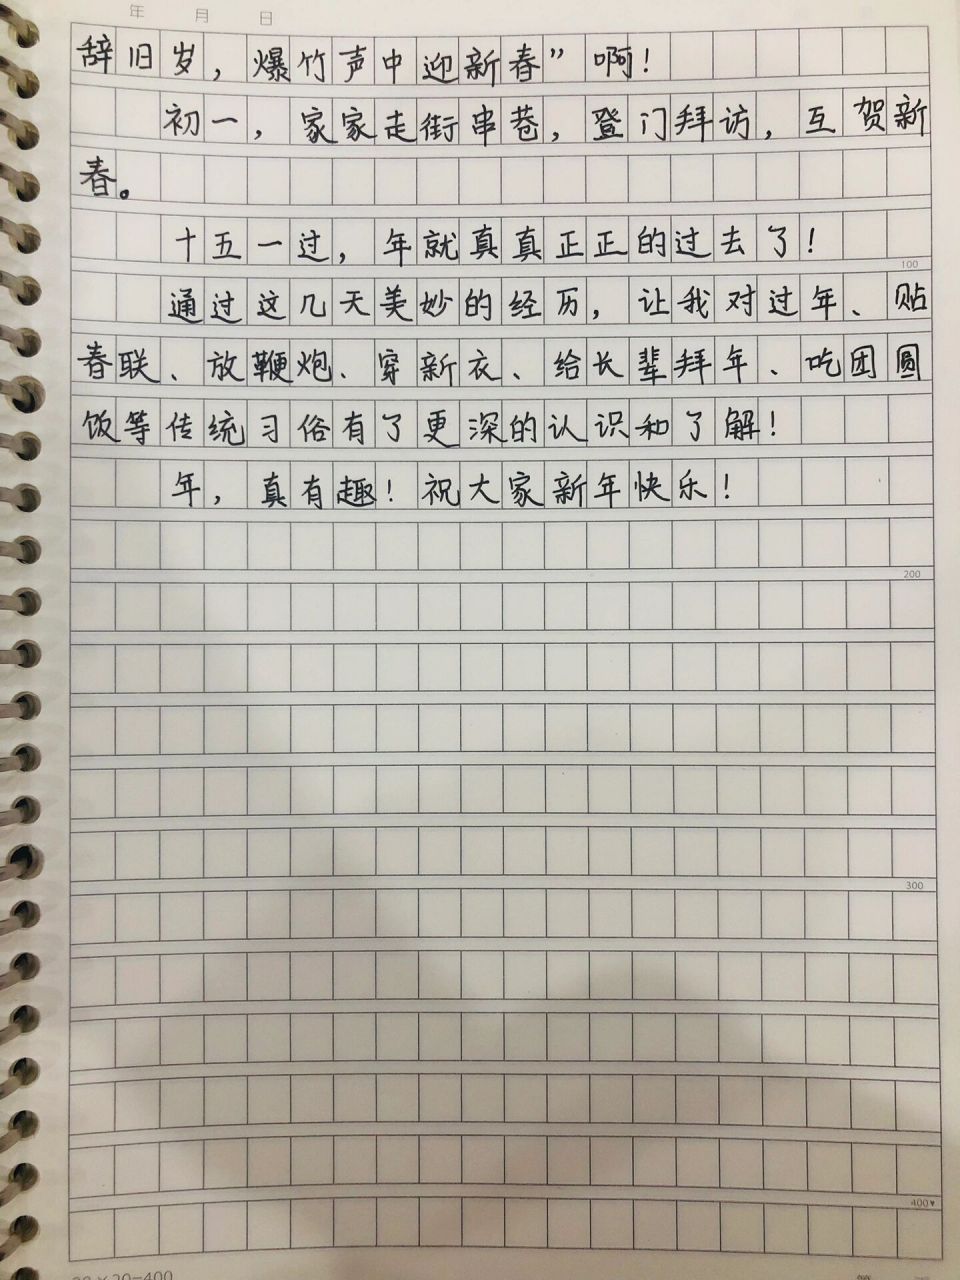 年 月 日
辞旧岁，爆竹声中迎新春”啊！
初一，家家走街串巷，登门拜访，互贺新
春。
十五一过，年就真真正正的过去了！
100
通过这几天美妙的经历，让我对过年、贴
春联、放鞭炮、穿新衣、给长辈拜年、吃团圆
饭等传统习俗有了更深的认识和了解！
年，真有趣！祝大家新年快乐！
200
300
400▼
20×20=400